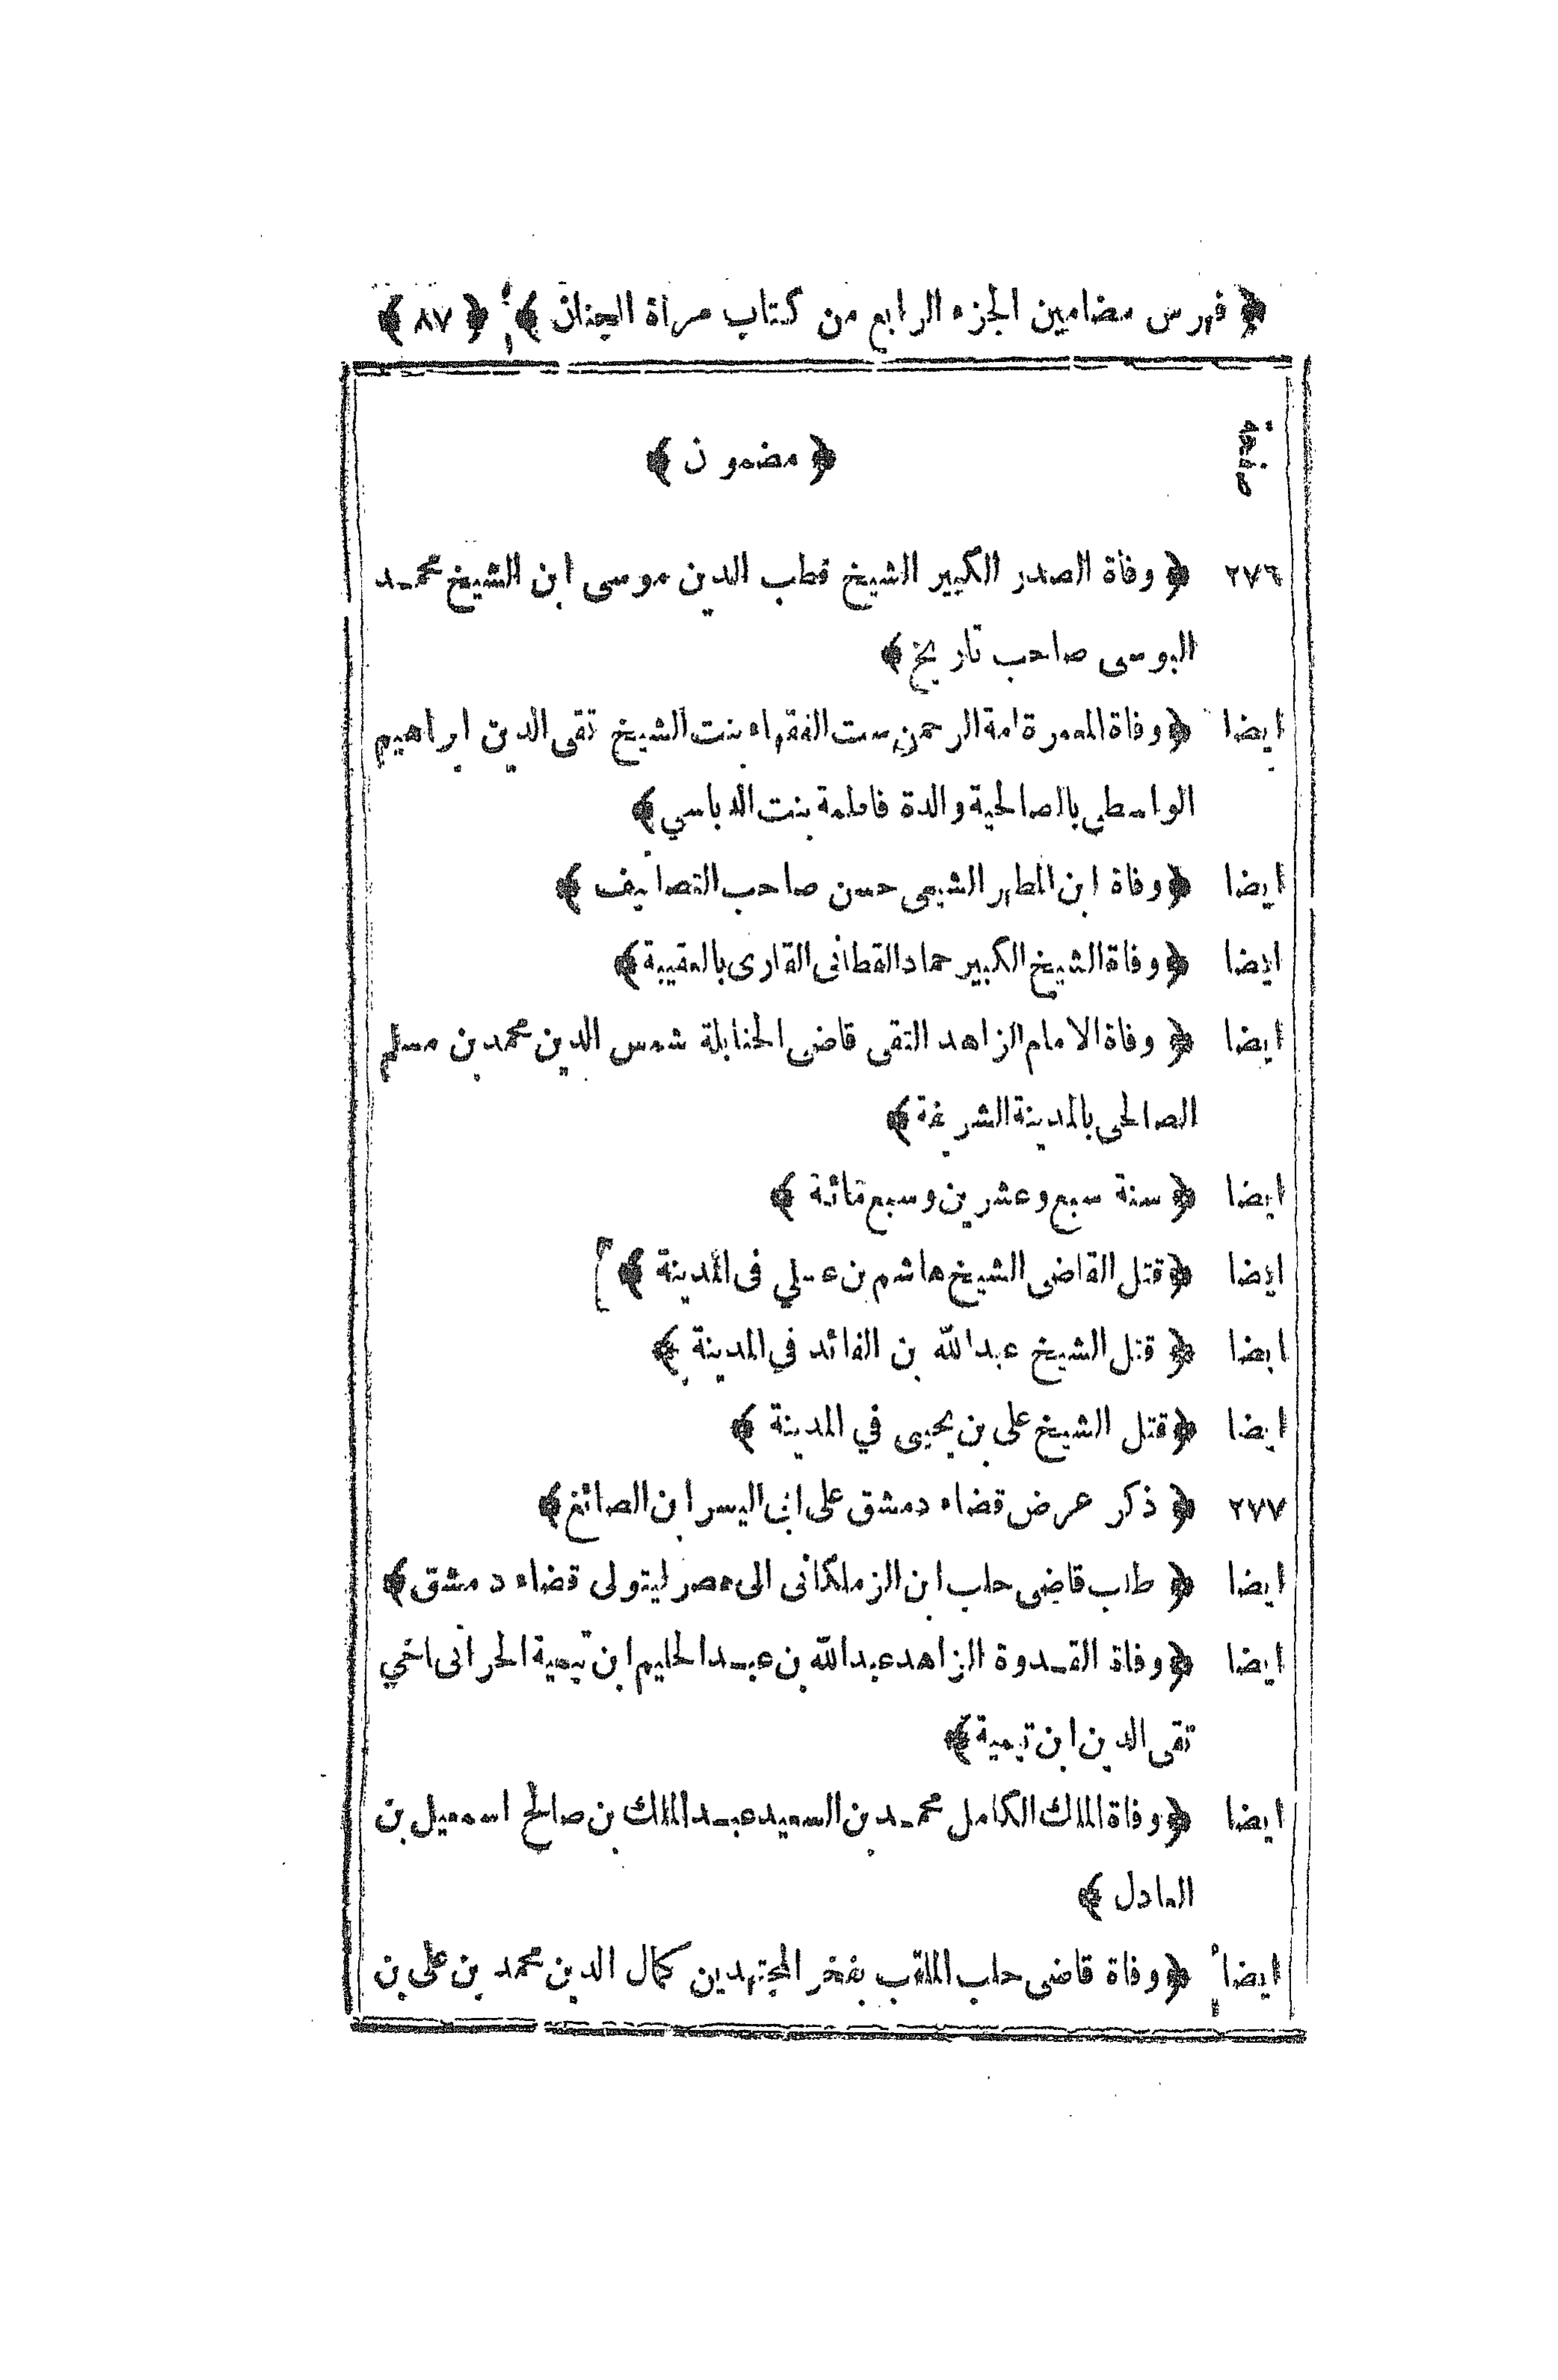 ﴿ فهرس مضامين الجزء الرابع من كتاب مرآة الجنان ﴾ ﴿ ٨٧ ﴾
صفحة ﴿ مضمون ﴾
٢٧٦ ﴿ وفاة الصدر الكبير الشيخ قطب الدين موسى ابن الشيخ محمد
البوسى صاحب تاريخ ﴾
ايضا ﴿ وفاة المعمرة امة الرحمن ست الفقهاء بنت الشيخ تقى الدين ابراهيم
الواسطي بالصالحية والدة فاطمة بنت الدباسي ﴾
ايضا ﴿ وفاة ابن المطهر الشيعى حسن صاحب التصانيف ﴾
ايضا ﴿ وفاة الشيخ الكبير حماد القطانى القارى بالعقيبة ﴾
ايضا ﴿ وفاة الامام الزاهد التقى قاضى الحنابلة شمس الدين محمد بن مسلم
الصالحى بالمدينة الشريفة ﴾
ايضا ﴿ سنة سبع وعشرين وسبع مائة ﴾
ايضا ﴿ قتل القاضى الشيخ هاشم بن علي فى المدينة ﴾
ايضا ﴿ قتل الشيخ عبد الله بن القائد في المدينة ﴾
ايضا ﴿ قتل الشيخ على بن يحيى في المدينة ﴾
٢٧٧ ﴿ ذكر عرض قضاء دمشق على ابى اليسر ابن الصائغ ﴾
ايضا ﴿ طلب قاضى حلب ابن الزملكانى الى مصر ليتولى قضاء دمشق ﴾
ايضا ﴿ وفاة القدوة الزاهد عبد الله بن عبد الحليم ابن تيمية الحرانى اخي
تقى الدين ابن تيمية ﴾
ايضا ﴿ وفاة الملك الكامل محمد بن السعيد عبد الملك بن صالح اسمعيل بن
العادل ﴾
ايضا ﴿ وفاة قاضى حلب الملقب بفخر المجتهدين كمال الدين محمد بن على بن